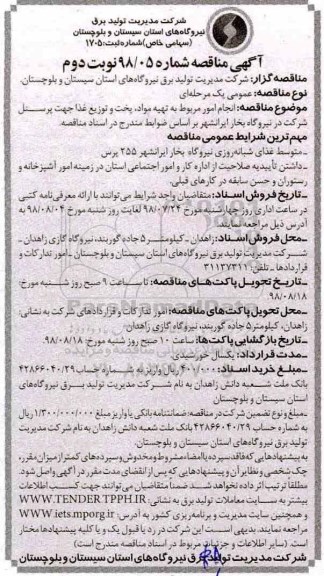 شرکت مدیریت تولید برق
نیروگاه‌های استان سیستان و بلوچستان
(سهامی خاص) شماره ثبت: ۱۷۰۵
آگهی مناقصه شماره ۹۸/۰۵ نوبت دوم
مناقصه گزار: شرکت مدیریت تولید برق نیروگاه‌های استان سیستان و بلوچستان.
نوع مناقصه: عمومی یک مرحله‌ای
موضوع مناقصه: انجام امور مربوط به تهیه مواد، پخت و توزیع غذا جهت پرسنل
شرکت در نیروگاه بخار ایرانشهر بر اساس ضوابط مندرج در اسناد مناقصه.
مهم‌ترین شرایط عمومی مناقصه
ـ متوسط غذای شبانه‌روزی نیروگاه بخار ایرانشهر ۲۵۵ پرس
ـ داشتن تأییدیه صلاحیت از اداره کار و امور اجتماعی استان در زمینه امور آشپزخانه و
رستوران و حسن سابقه در کارهای قبلی.
ـ تاریخ فروش اسناد: متقاضیان واجد شرایط می‌توانند با ارائه معرفی‌نامه کتبی
در ساعات اداری روز چهارشنبه مورخ ۹۸/۰۷/۲۴ لغایت روز شنبه مورخ ۹۸/۰۸/۰۴ به
آدرس ذیل مراجعه نمایند.
ـ محل فروش اسناد: زاهدان ـ کیلومتر ۵ جاده گوربند، نیروگاه گازی زاهدان ـ
شرکت مدیریت تولید برق نیروگاه‌های استان سیستان و بلوچستان ـ امور تدارکات و
قراردادها ـ تلفن: ۳۱۱۳۷۳۱۱
ـ تاریخ تحویل پاکت‌های مناقصه: تا ساعت ۹ صبح روز شنبه مورخ
۹۸/۰۸/۱۸
ـ محل تحویل پاکت‌های مناقصه: امور تدارکات و قراردادهای شرکت به نشانی:
زاهدان، کیلومتر ۵ جاده گوربند، نیروگاه گازی زاهدان
ـ تاریخ بازگشایی پاکت‌ها: ساعت ۱۰ صبح روز شنبه مورخ ۹۸/۰۸/۱۸
ـ مدت قرارداد: یکسال خورشیدی.
ـ مبلغ خرید اسناد: ۴۰۱/۰۰۰ ریال واریز به شماره حساب ۴۲۸۶۶۰۴۰/۲۹
بانک ملت شعبه دانش زاهدان به نام شرکت مدیریت تولید برق نیروگاه‌های
استان سیستان و بلوچستان
ـ مبلغ و نوع تضمین شرکت در مناقصه: ضمانتنامه بانکی یا واریز مبلغ ۱/۳۰۰/۰۰۰/۰۰۰ ریال
به شماره حساب ۴۲۸۶۶۰۴۰/۲۹ بانک ملت شعبه دانش زاهدان به نام شرکت مدیریت
تولید برق نیروگاه‌های استان سیستان و بلوچستان.
به پیشنهادهایی که فاقد سپرده یا امضاء مشروط و مخدوش و سپرده‌های کمتر از میزان مقرر،
چک شخصی و نظایر آن و پیشنهادهایی که پس از انقضای مدت مقرر در آگهی واصل شود.
مطلقاً ترتیب اثر داده نخواهد شد ضمناً متقاضیان می‌توانند جهت کسب اطلاعات
بیشتر به سایت معاملات تولید برق به نشانی: WWW.TENDER.TPPH.IR
و همچنین سایت مدیریت و برنامه‌ریزی کشور به آدرس: www.iets.mporg.ir
مراجعه نمایند. بدیهی است این شرکت در رد یا قبول یک و یا کلیه پیشنهادها مختار
است. (سایر اطلاعات و جزئیات مربوط در اسناد مناقصه مندرج است)
شرکت مدیریت تولید برق نیروگاه‌های استان سیستان و بلوچستان